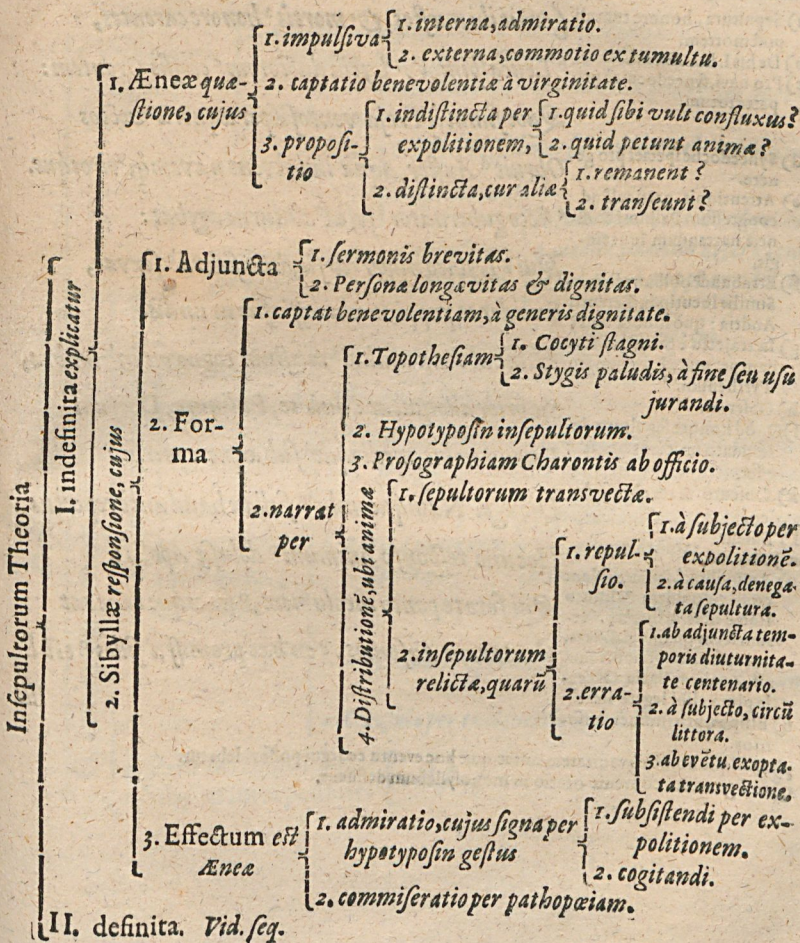 Insepultorum Theoria
I. indefinita explicatur
1. Æneæ quæ-
stione, cujus
1. impulsiva
1. interna, admiratio.
2. externa, commotio ex tumultu.
2. captatio benevolentiæ à virginitate.
3. proposi-
tio
1. indistincta per
expolitionem,
1. quid sibi vult confluxus?
2. quid petunt animæ?
2. distincta, cur aliæ
1. remanent?
2. transeunt?
2. Sibyllæ responsione, cujus
1. Adjuncta
1. sermonis brevitas.
2. Personæ longævitas & dignitas.
2. For-
ma
1. captat benevolentiam, à generis dignitate.
2. narrat
per
1. Topothesiam
1. Cocyti stagni.
2. Stygis paludis, à fine seu usu
jurandi.
2. Hypotyposin insepultorum.
3. Prosographiam Charontis ab officio.
4. Distributionē, ubi animæ
1. sepultorum transvectæ.
2. insepultorum
relictæ, quarū
1. repul-
sio.
1. à subjecto per
expolitionē.
2. à causa, denega-
ta sepultura.
2. erra-
tio
1. ab adjuncta tem-
poris diuturnita-
te centenario.
2. à subjecto, circū
littora.
3. ab evētu, exopta-
ta transvectione.
3. Effectum est
Æneæ
1. admiratio, cujus signa per
hypotyposin gestus
1. subsistendi per ex-
politionem.
2. cogitandi.
2. commiseratio per pathopœiam.
II. definita. Vid. seq.